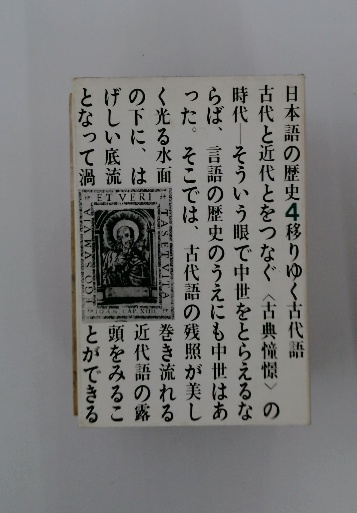 日本語の歴史4移りゆく古代語
古代と近代とをつなぐ〈古典憧憬〉の
時代―そういう眼で中世をとらえるな
らば、言語の歴史のうえにも中世はあ
った。そこでは、古代語の残照が美し
く光る水面
巻き流れる
の下に、は
近代語の露
げしい底流
頭をみるこ
となって渦
とができる
ET VERI
TAS ET VITA
VIA